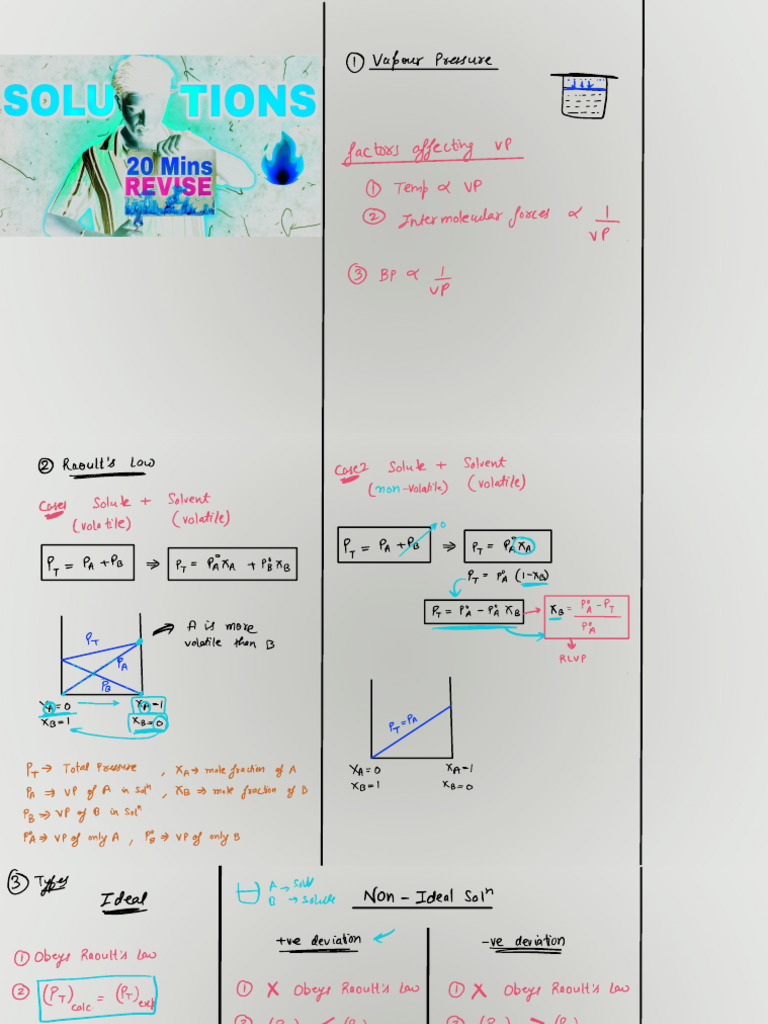 SOLUTIONS
20 Mins
REVISE
① Vapour Pressure
factors affecting VP
① Temp ∝ VP
② Intermolecular forces ∝ 1/VP
③ BP ∝ 1/VP
② Raoult's Law
Case1 Solute + Solvent
(volatile) (volatile)
P_T = P_A + P_B ⇒ P_T = P°_A X_A + P°_B X_B
A is more
volatile than B
P_T
P_A
P_B
X_A=0 X_A=1
X_B=1 X_B=0
P_T → Total Pressure, X_A → mole fraction of A
P_A ⇒ VP of A in solⁿ, X_B ⇒ mole fraction of B
P_B ⇒ VP of B in solⁿ
P°_A ⇒ VP of only A, P°_B ⇒ VP of only B
Case2 Solute + Solvent
(non-volatile) (volatile)
P_T = P_A + P_B 0 ⇒ P_T = P°_A X_A
P_T = P°_A (1-X_B)
P_T = P°_A - P°_A X_B → X_B = P°_A - P_T / P°_A
RLVP
P_T = P_A
X_A=0 X_A=1
X_B=1 X_B=0
③ Types
Ideal
① Obeys Raoult's Law
② (P_T)calc = (P_T)exp
A →
B → Solute
Non-Ideal Solⁿ
+ve deviation
① X Obeys Raoult's Law
-ve deviation
① X Obeys Raoult's Law